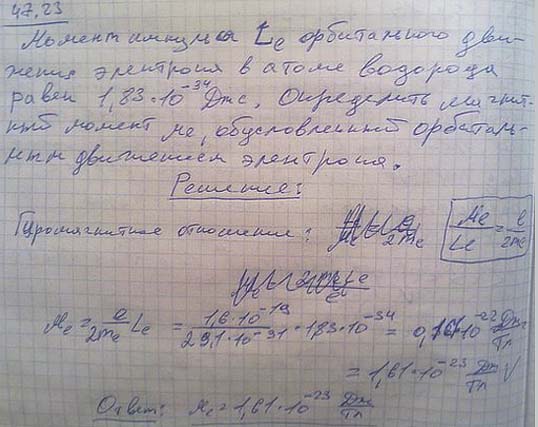 47.23
Момент импульса Le орбитального дви-
жения электрона в атоме водорода
равен 1,83·10⁻³⁴ Джс. Определить магнит-
ный момент Me, обусловленный орбиталь-
ным движением электрона.
Решение:
Гиромагнитное отношение: Me/Le = e/2me
Me = e/2me Le = 1,6·10⁻¹⁹/2·9,1·10⁻³¹ · 1,83·10⁻³⁴ = 0,161·10⁻²² Дж/Тл
= 1,61·10⁻²³ Дж/Тл V
Ответ: Me = 1,61·10⁻²³ Дж/Тл